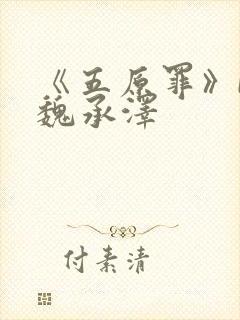 《五原罪》
魏承泽
付素清